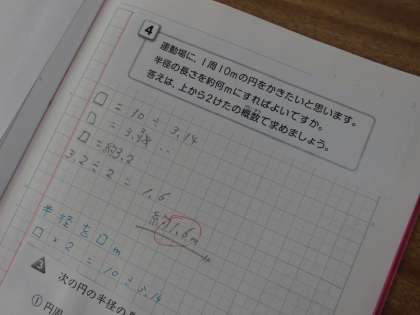 4
運動場に、1周10mの円をかきたいと思います。
半径の長さを約何mにすればよいですか。
答えは、上から2けたの概数で求めましょう。
□ = 10 ÷ 3.14
□ = 3.18…
□ = 約3.2
3.2 ÷ 2 = 1.6
約1.6m
半径を□m
□×2 = 10÷3.14
3
次の円の半径の
① 円周